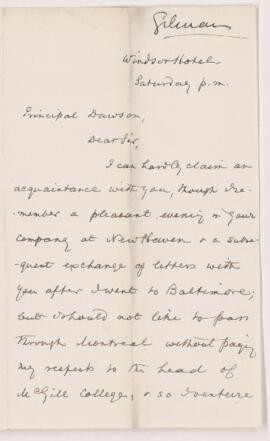 Gilman
Windsor Hotel
Saturday p.m.
Principal Dawson,
Dear Sir,
I can hardly claim an
acquaintance with you, though I re-
-member a pleasant evening in your
company at New Haven & a subse-
quent exchange of letters with
you after I went to Baltimore;
but I should not like to pass
through Montreal without paying
my respects to the head of
McGill College, & so I venture